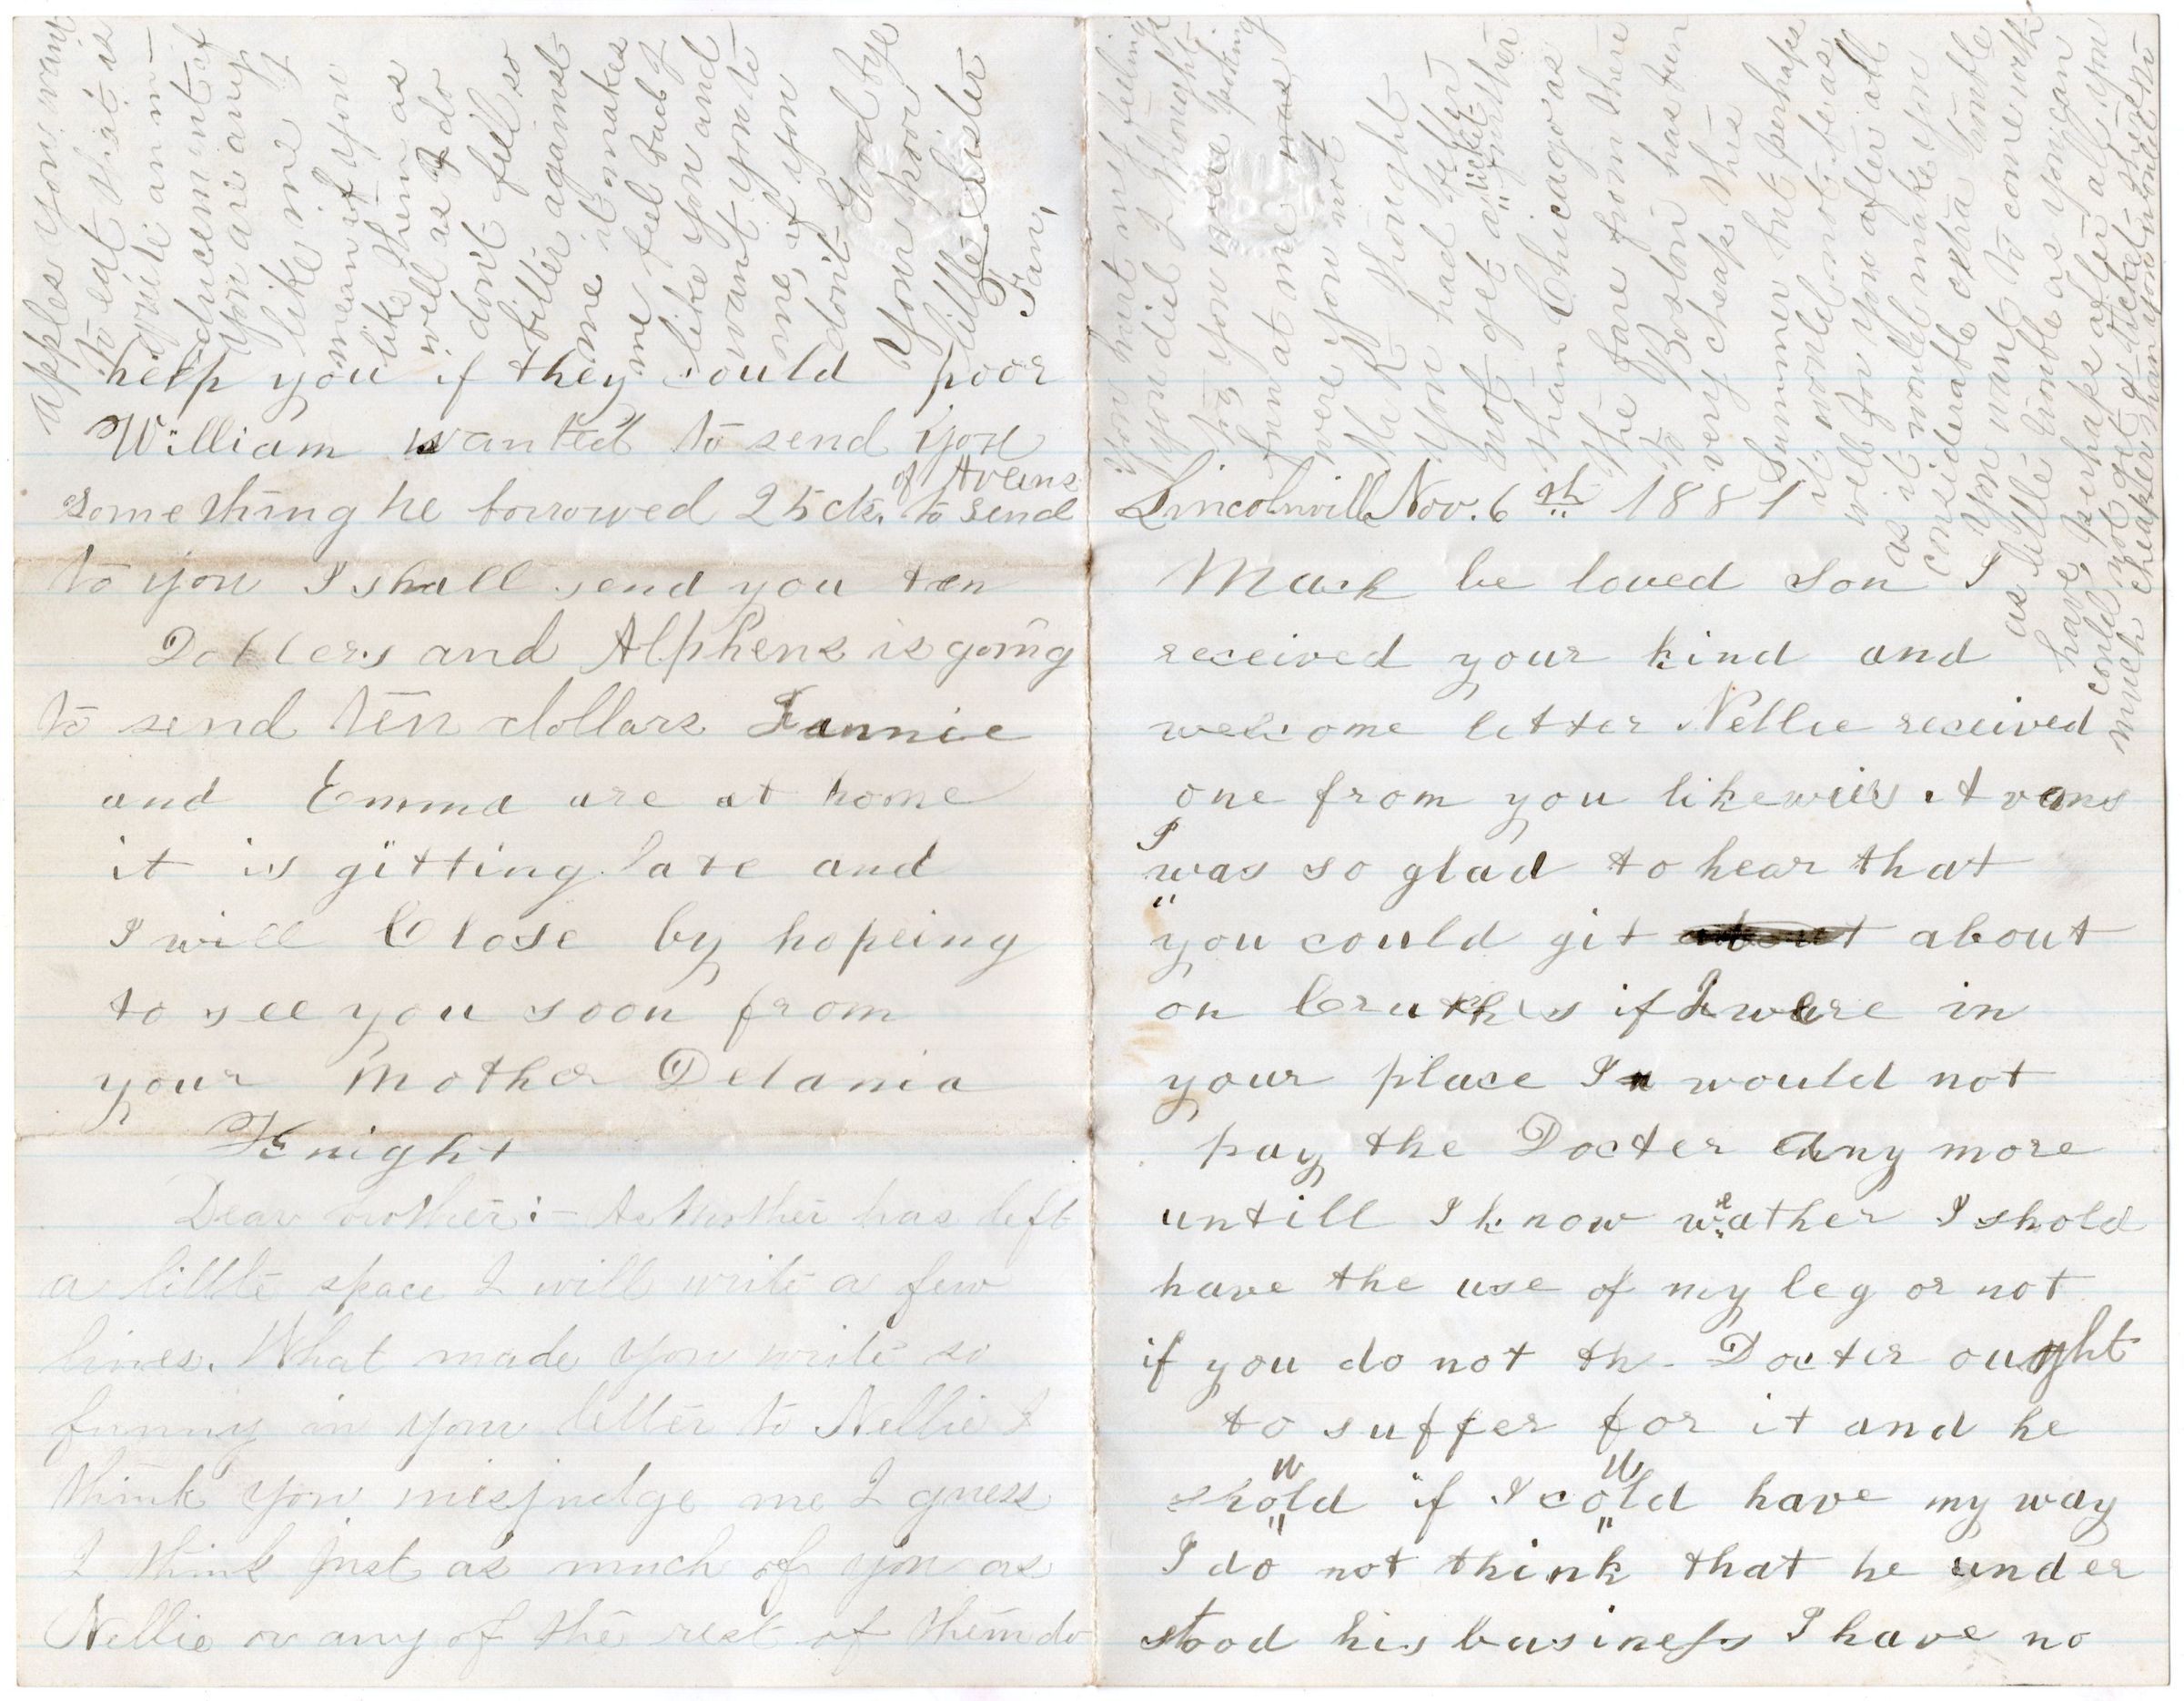 Lincolnvill Nov. 6th 1881
Mark be loved son I
received your kind and
welcome letter Nellie received
one from you likewies Avens
I
was so glad to hear that
you could git about about
on Crutches if I were in
your place I would not
pay the Docter any more
untill I know weather I shold
have the use of my leg or not
if you do not th- Docter ought
to suffer for it and he
shuld if I culd have my way
I do not think that he under
stood his business I have no
help you if they could poor
William wanted to send you
of Avens
something he borrowed 25 cts. to send
to you I shall send you ten
Dollers and Alpheus is going
to send ten dollars Fannie
and Emma are at home
it is gitting late and
I will Close by hopeing
to see you soon from
your Mother Delania
Knight
Dear brother:- As Mother has left
a little space I will write a few
lines. What made you write so
funny in your letter to Nellie I
think you misjudge me I guess
I think just as much of you as
Nellie or any of the rest of them do
you hurt my feelings
you did I thought
by you were poking
fun at me was
were you not
Mark I thought
you had better
not get a ticket further
than Chicago as
the fare from there
to Boston has been
very cheap this
Summer but perhaps
it would not be as
well for you after all
as it would make you
considerable extra trouble
you want to come with
as little trouble as you can
have, perhaps after all you
could not get a ticket there no
much cheaper than you would
apples you want
to eat that is
quite an in-
ducement if
you are any
like me I
mean if you
like them as
well as I do
don't feel so
bitter against
me it makes
me feel bad I
like you and
want you to
me, if you
don't Good bye
Your poor
little Sister
Fan,